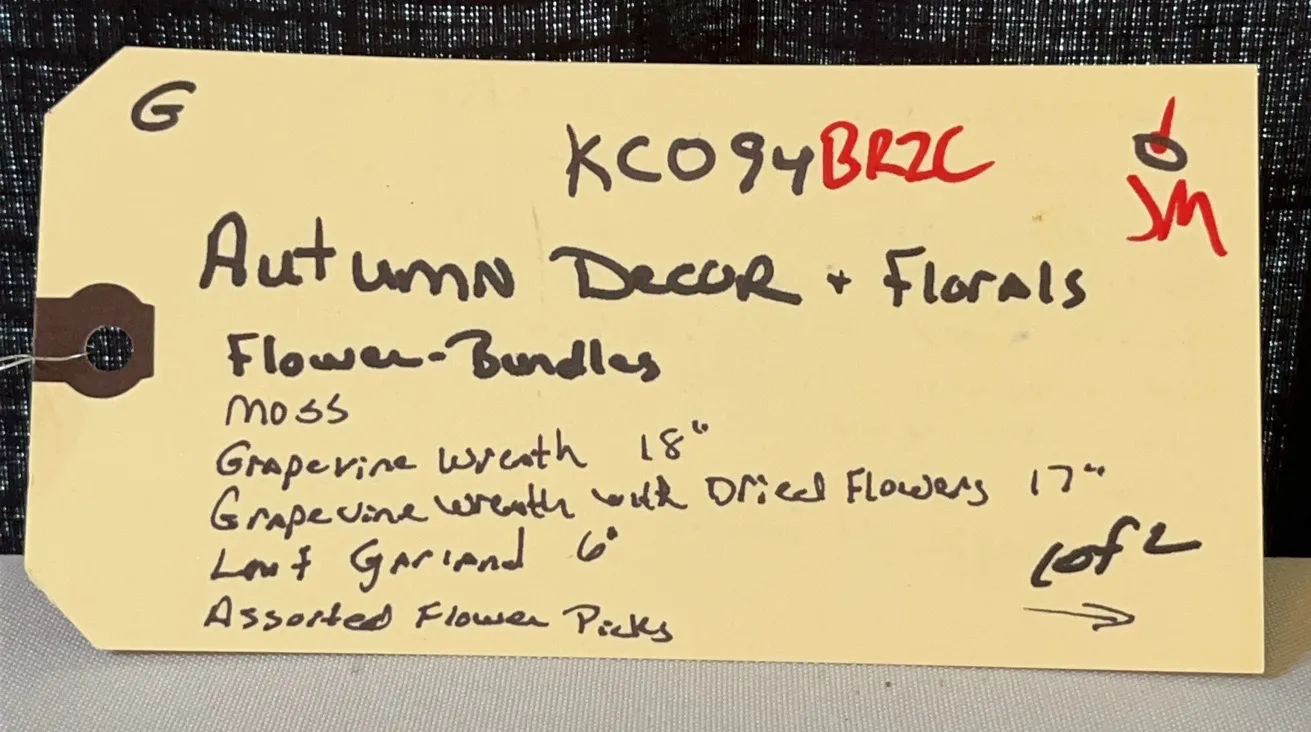 G
KC094BR2C
JM
Autumn Decor + Florals
Flower-Bundles
Moss
Grapevine Wreath 18"
Grapevine Wreath with Dried Flowers 17"
Leaf Garland 6'
1 of 2
Assorted Flower Picks